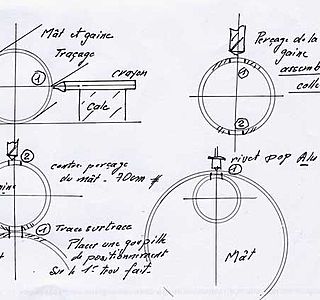 Mât et gaine
Traçage
1
crayon
Cale
Perçage de la
gaine
assemb
colle
1
2
2
contre perçage
du mât. 70cm #
ine
1 Trace surtrace
Placer une goupille
de positionnement
Sur le 1er trou fait.
rivet pop Alu
1
Mât